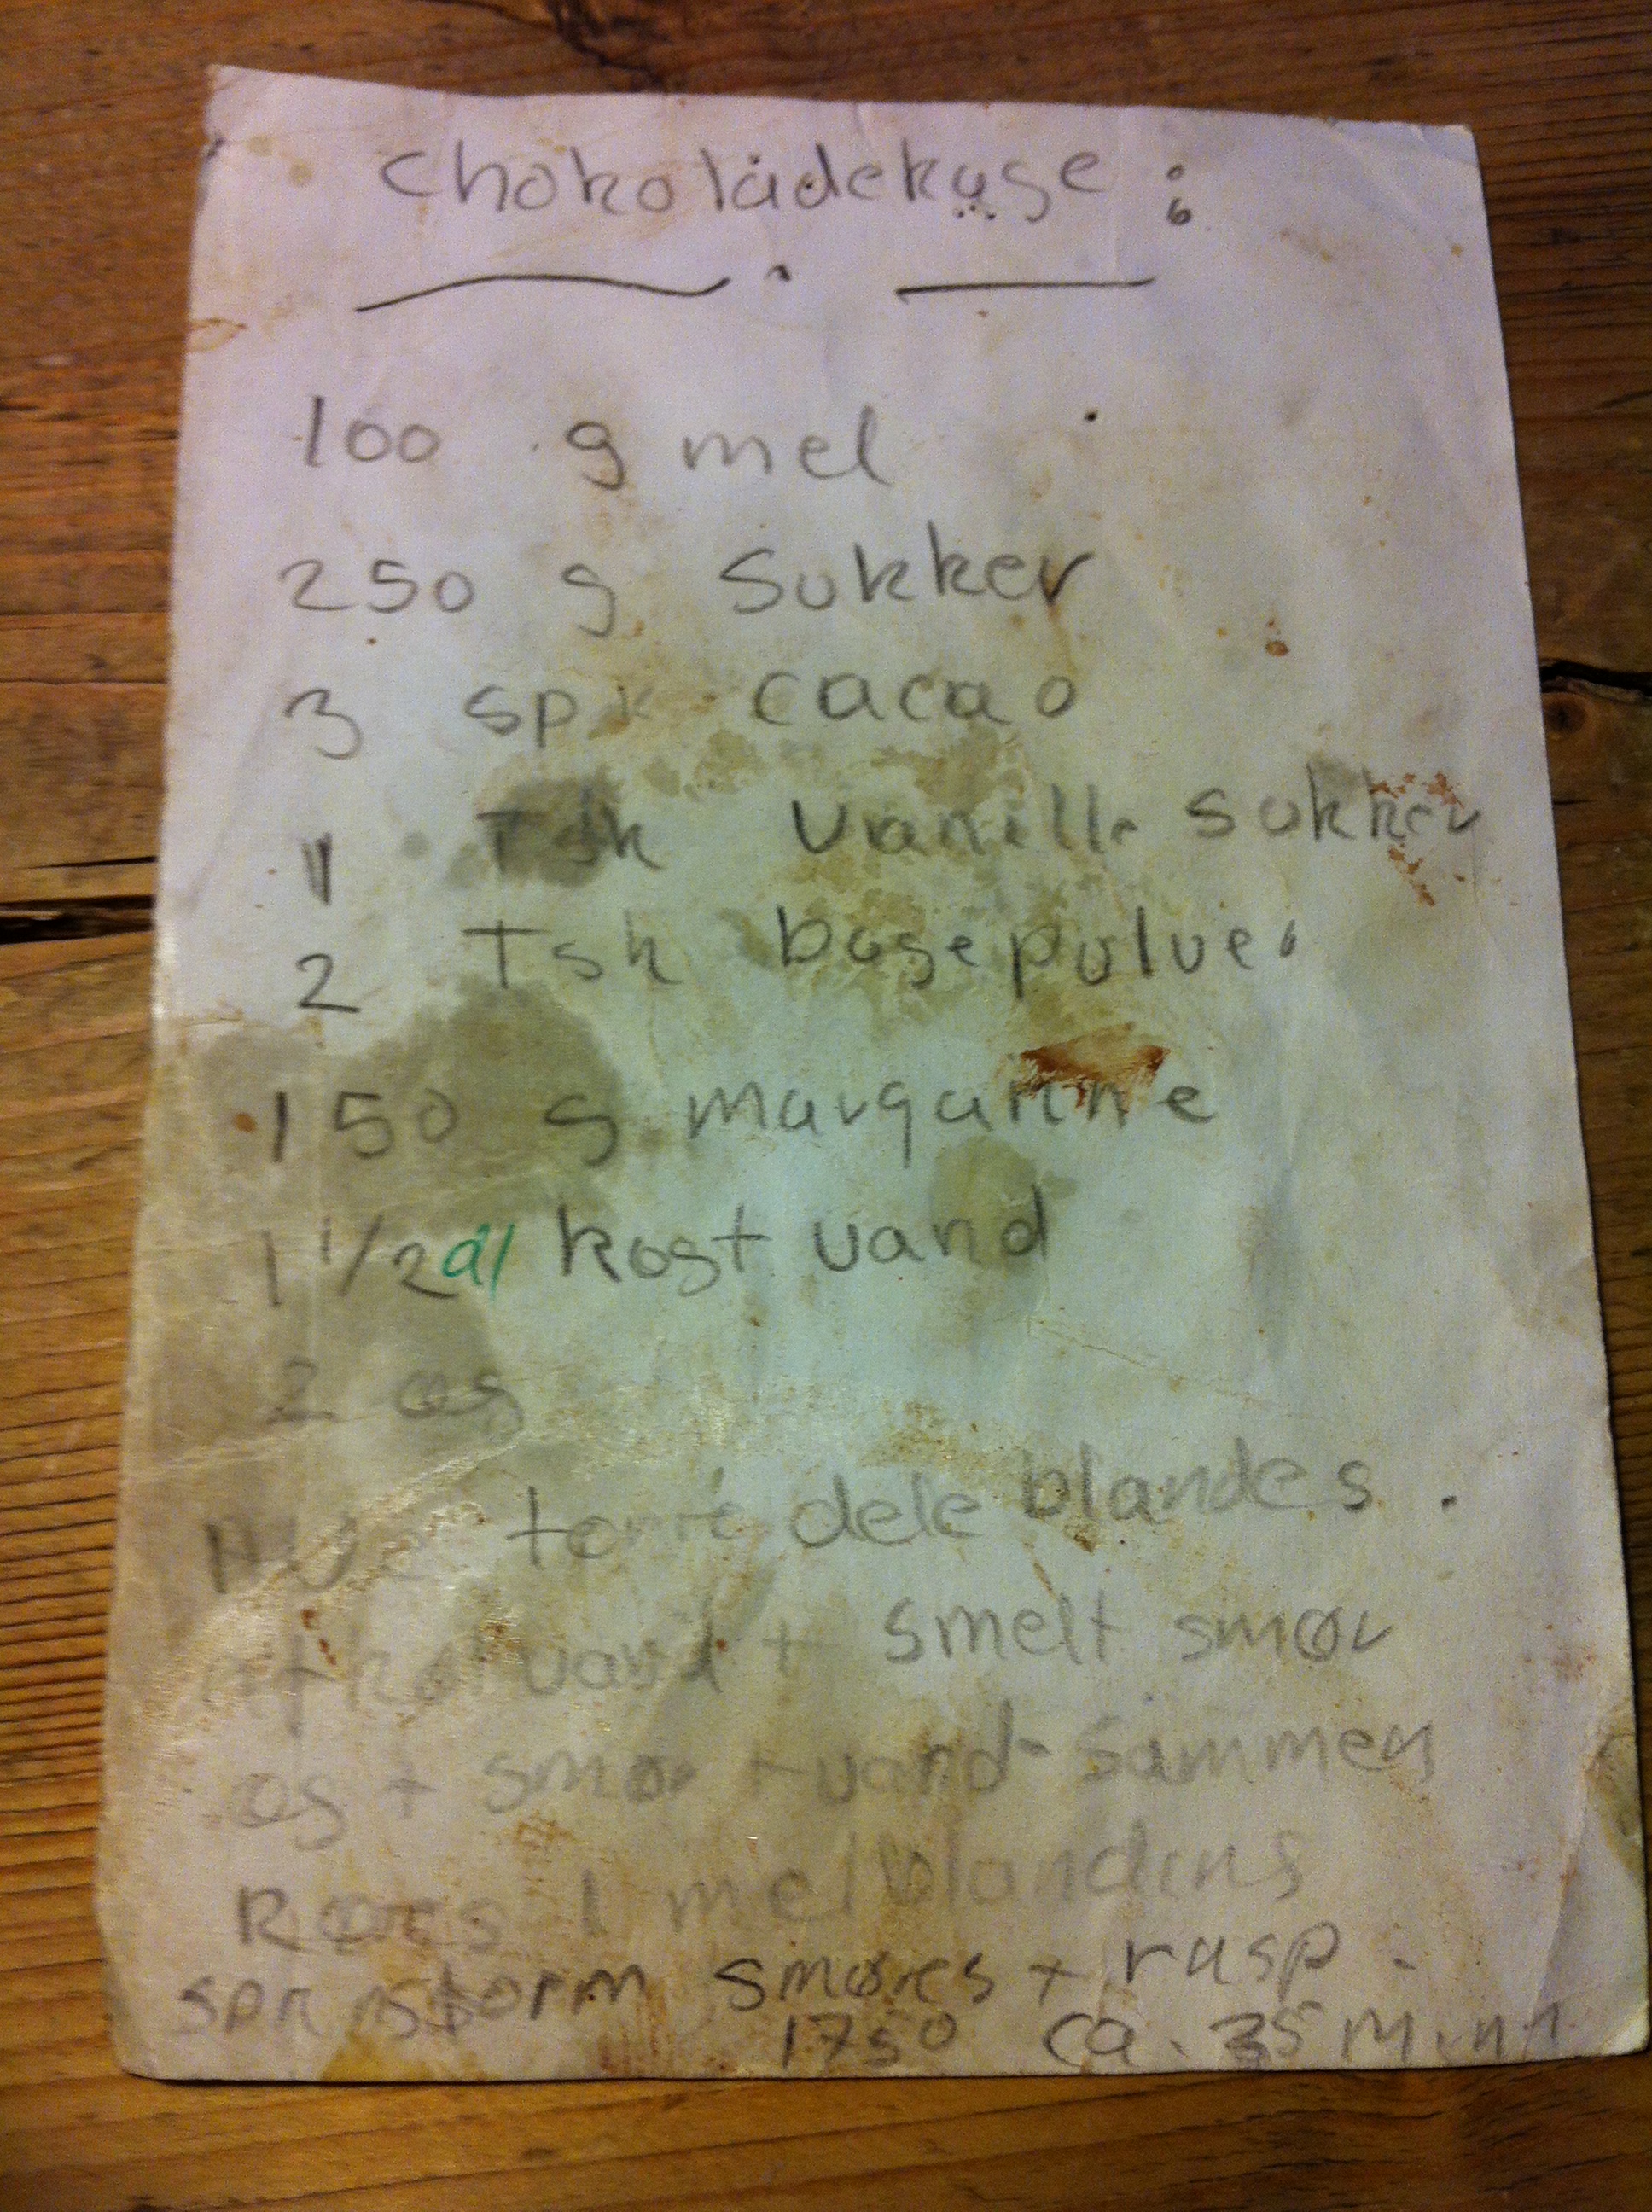 Chokoladekage :
100 g mel
250 g Sukker
3 spk cacao
1 Tsk Vanille sukker
2 Tsk bagepulver
150 g margarine
1 1/2 dl kogt vand
2 æg
dele blandes .
vand + smelt smør
æg + smør + vand sammen
Røres i melblanding
springform smøres + rasp .
175° ca. 35 min